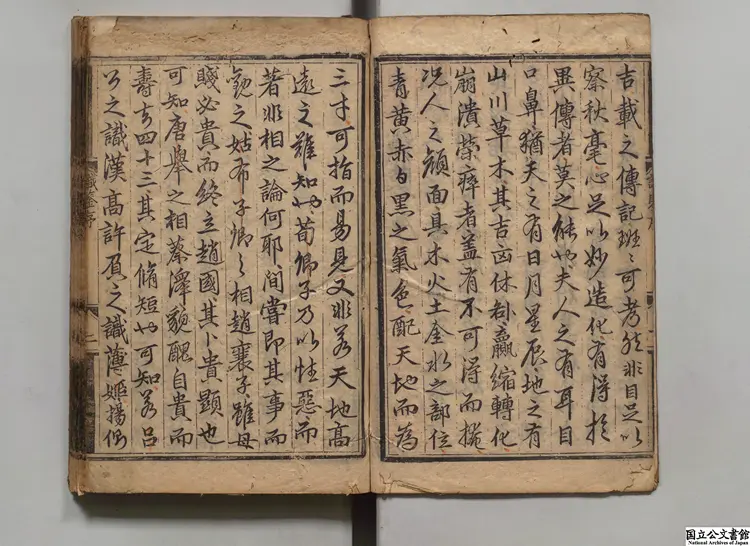 吉載之傳記班〻可考然非目足以
察秋毫心足以妙造化有得於
異傳者莫之能也夫人之有耳目
口鼻猶天之有日月星辰地之有
山川草木其吉凶休咎贏縮轉化
崩潰榮瘁者盖有不可得而揜
况人之顔面具木火土金水之部位
青黄赤白黑之氣色配天地而為
三才可指而易見又非若天地髙
遠之難知也荀卿子乃以性惡而
著非相之論何耶間嘗即其事而
觀之姑布子卿之相趙襄子雖母
賤必貴而終立趙國其卜貴顯也
可知唐舉之相蔡澤貌醜自貴而
壽有四十三其定脩短也可知若呂
公之識漢髙許負之識薄姬揚
二
国立公文書館
National Archives of Japan